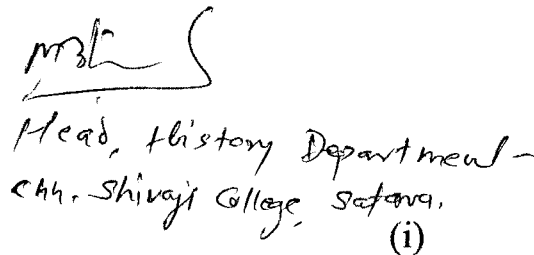 Head, History Department -
Chh. Shivaji College, Satara.
(i)